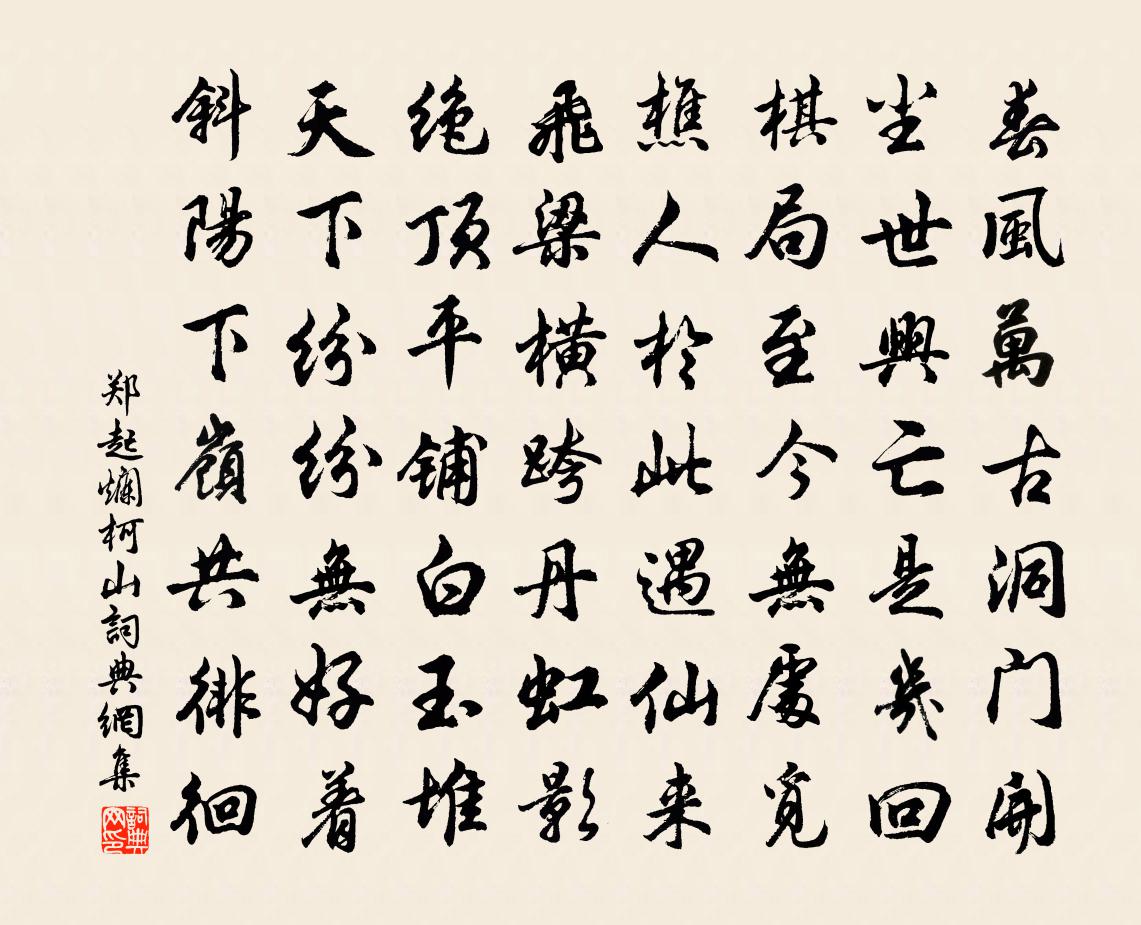 春風萬古洞门開
坐世興亡是幾回
棋局至今無處覓
樵人於此遇仙来
飛梁橫跨丹虹影
绝顶平铺白玉堆
天下紛紛無好着
斜陽下嶺共徘徊
郑起爛柯山詞典網集
詞典网印